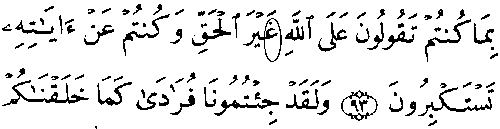 بِمَا كُنتُمْ تَقُولُونَ عَلَى ٱللَّهِ غَيْرَ ٱلْحَقِّ وَكُنتُمْ عَنْ ءَايَـٰتِهِۦ
تَسْتَكْبِرُونَ ٩٣ وَلَقَدْ جِئْتُمُونَا فُرَٰدَىٰ كَمَا خَلَقْنَـٰكُمْ